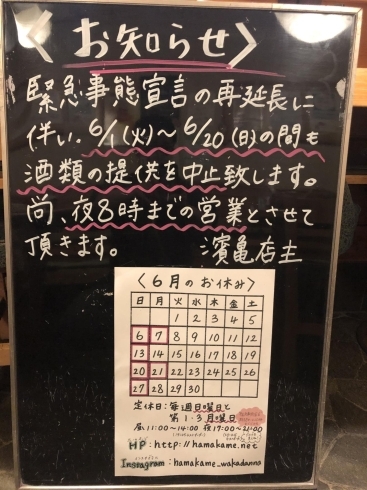 〈お知らせ〉
緊急事態宣言の再延長に
伴い、6/1(火)〜6/20(日)の間も
酒類の提供を中止致します。
尚、夜8時までの営業とさせて
頂きます。 濱亀店主
〈6月のお休み〉
日 月 火 水 木 金 土
1 2 3 4 5
6 7 8 9 10 11 12
13 14 15 16 17 18 19
20 21 22 23 24 25 26
27 28 29 30
定休日:毎週日曜日と
第1・3月曜日
昼11:00〜14:00 夜17:00〜21:00
HP:http://hamakame.net
Instagram:hamakame_wakadanna